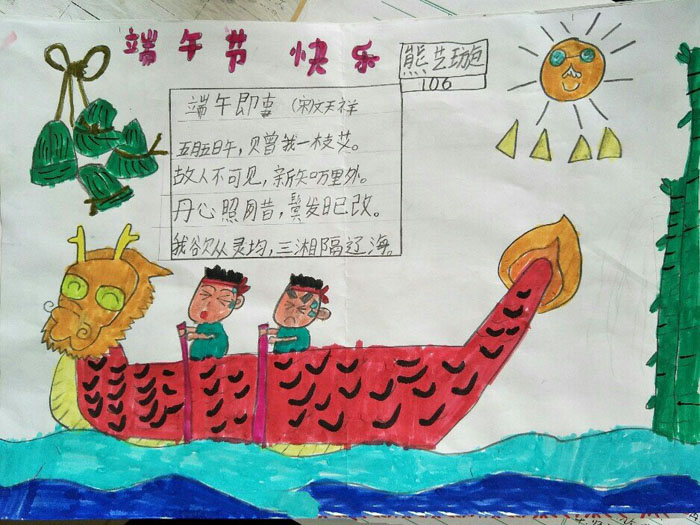 端午节 快乐
熊艺璇
106
端午即事 （宋文天祥
五月五日午，赠我一枝艾。
故人不可见，新知万里外。
丹心照夙昔，鬓发日已改。
我欲从灵均，三湘隔辽海。